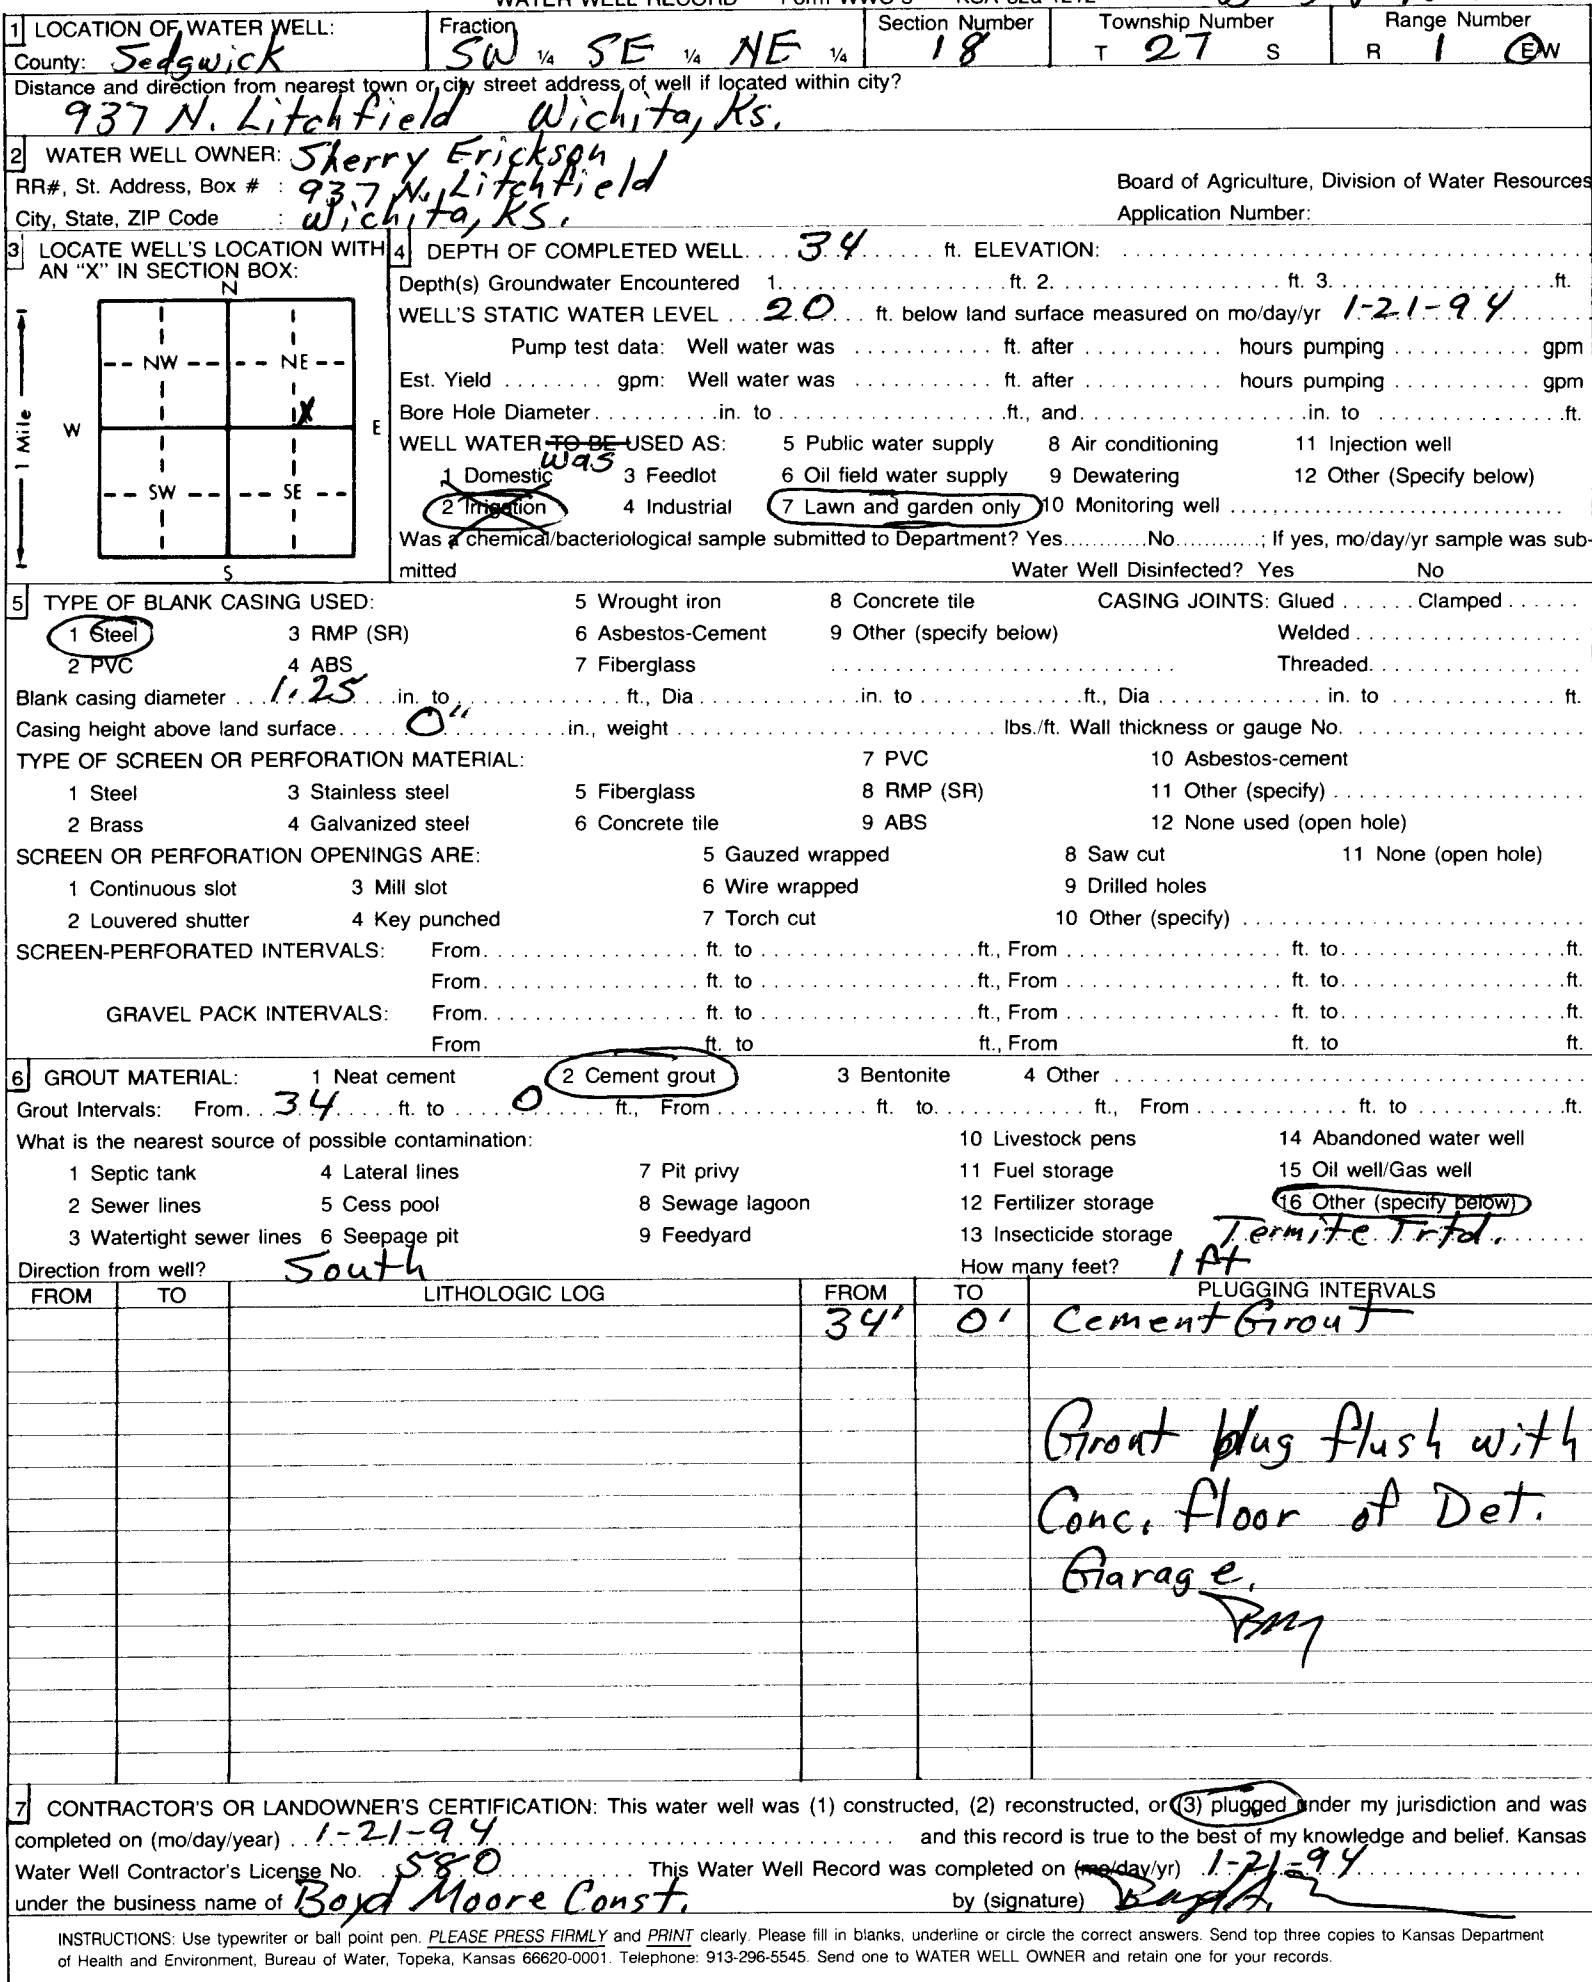 WATER WELL RECORD Form WWC-5 KSA 82a-1212
1 LOCATION OF WATER WELL: Fraction Section Number Township Number Range Number
County: Sedgwick SW ¼ SE ¼ NE ¼ 18 T 27 S R 1 E/W
Distance and direction from nearest town or city street address of well if located within city?
937 N. Litchfield Wichita, Ks.
2 WATER WELL OWNER: Sherry Erickson
RR#, St. Address, Box # : 937 N. Litchfield Board of Agriculture, Division of Water Resources
City, State, ZIP Code : Wichita, KS. Application Number:
3 LOCATE WELL'S LOCATION WITH AN "X" IN SECTION BOX:
N
NW NE
X
W E
SW SE
S
1 Mile
4 DEPTH OF COMPLETED WELL.... 34 ...... ft. ELEVATION: ......
Depth(s) Groundwater Encountered 1. ...... ft. 2. ...... ft. 3. ...... ft.
WELL'S STATIC WATER LEVEL ... 20 ... ft. below land surface measured on mo/day/yr 1-21-94
Pump test data: Well water was ...... ft. after ...... hours pumping ...... gpm
Est. Yield ...... gpm: Well water was ...... ft. after ...... hours pumping ...... gpm
Bore Hole Diameter ...... in. to ...... ft., and ...... in. to ...... ft.
WELL WATER TO BE USED AS: 5 Public water supply 8 Air conditioning 11 Injection well
was
1 Domestic 3 Feedlot 6 Oil field water supply 9 Dewatering 12 Other (Specify below)
2 Irrigation 4 Industrial 7 Lawn and garden only 10 Monitoring well ......
Was a chemical/bacteriological sample submitted to Department? Yes......No......; If yes, mo/day/yr sample was sub-
mitted Water Well Disinfected? Yes No
5 TYPE OF BLANK CASING USED: 5 Wrought iron 8 Concrete tile CASING JOINTS: Glued ...... Clamped ......
1 Steel 3 RMP (SR) 6 Asbestos-Cement 9 Other (specify below) Welded ......
2 PVC 4 ABS 7 Fiberglass ...... Threaded ......
Blank casing diameter ... 1.25 ... in. to ...... ft., Dia ...... in. to ...... ft., Dia ...... in. to ...... ft.
Casing height above land surface ...... 0" ...... in., weight ...... lbs./ft. Wall thickness or gauge No. ......
TYPE OF SCREEN OR PERFORATION MATERIAL: 7 PVC 10 Asbestos-cement
1 Steel 3 Stainless steel 5 Fiberglass 8 RMP (SR) 11 Other (specify) ......
2 Brass 4 Galvanized steel 6 Concrete tile 9 ABS 12 None used (open hole)
SCREEN OR PERFORATION OPENINGS ARE: 5 Gauzed wrapped 8 Saw cut 11 None (open hole)
1 Continuous slot 3 Mill slot 6 Wire wrapped 9 Drilled holes
2 Louvered shutter 4 Key punched 7 Torch cut 10 Other (specify) ......
SCREEN-PERFORATED INTERVALS: From ...... ft. to ...... ft., From ...... ft. to ...... ft.
From ...... ft. to ...... ft., From ...... ft. to ...... ft.
GRAVEL PACK INTERVALS: From ...... ft. to ...... ft., From ...... ft. to ...... ft.
From ft. to ft., From ft. to ft.
6 GROUT MATERIAL: 1 Neat cement 2 Cement grout 3 Bentonite 4 Other ......
Grout Intervals: From... 34 ..... ft. to ..... 0 ...... ft., From ...... ft. to ...... ft., From ...... ft. to ...... ft.
What is the nearest source of possible contamination: 10 Livestock pens 14 Abandoned water well
1 Septic tank 4 Lateral lines 7 Pit privy 11 Fuel storage 15 Oil well/Gas well
2 Sewer lines 5 Cess pool 8 Sewage lagoon 12 Fertilizer storage 16 Other (specify below)
3 Watertight sewer lines 6 Seepage pit 9 Feedyard 13 Insecticide storage Termite Trtd.
Direction from well? South How many feet? 1 ft
FROM TO LITHOLOGIC LOG FROM TO PLUGGING INTERVALS
34' 0' Cement Grout
Grout plug flush with
Conc. floor of Det.
Garage.
7 CONTRACTOR'S OR LANDOWNER'S CERTIFICATION: This water well was (1) constructed, (2) reconstructed, or (3) plugged under my jurisdiction and was
completed on (mo/day/year) .. 1-21-94 ...... and this record is true to the best of my knowledge and belief. Kansas
Water Well Contractor's License No. .. 580 ...... This Water Well Record was completed on (mo/day/yr) 1-21-94
under the business name of Boyd Moore Const. by (signature)
INSTRUCTIONS: Use typewriter or ball point pen. PLEASE PRESS FIRMLY and PRINT clearly. Please fill in blanks, underline or circle the correct answers. Send top three copies to Kansas Department
of Health and Environment, Bureau of Water, Topeka, Kansas 66620-0001. Telephone: 913-296-5545. Send one to WATER WELL OWNER and retain one for your records.